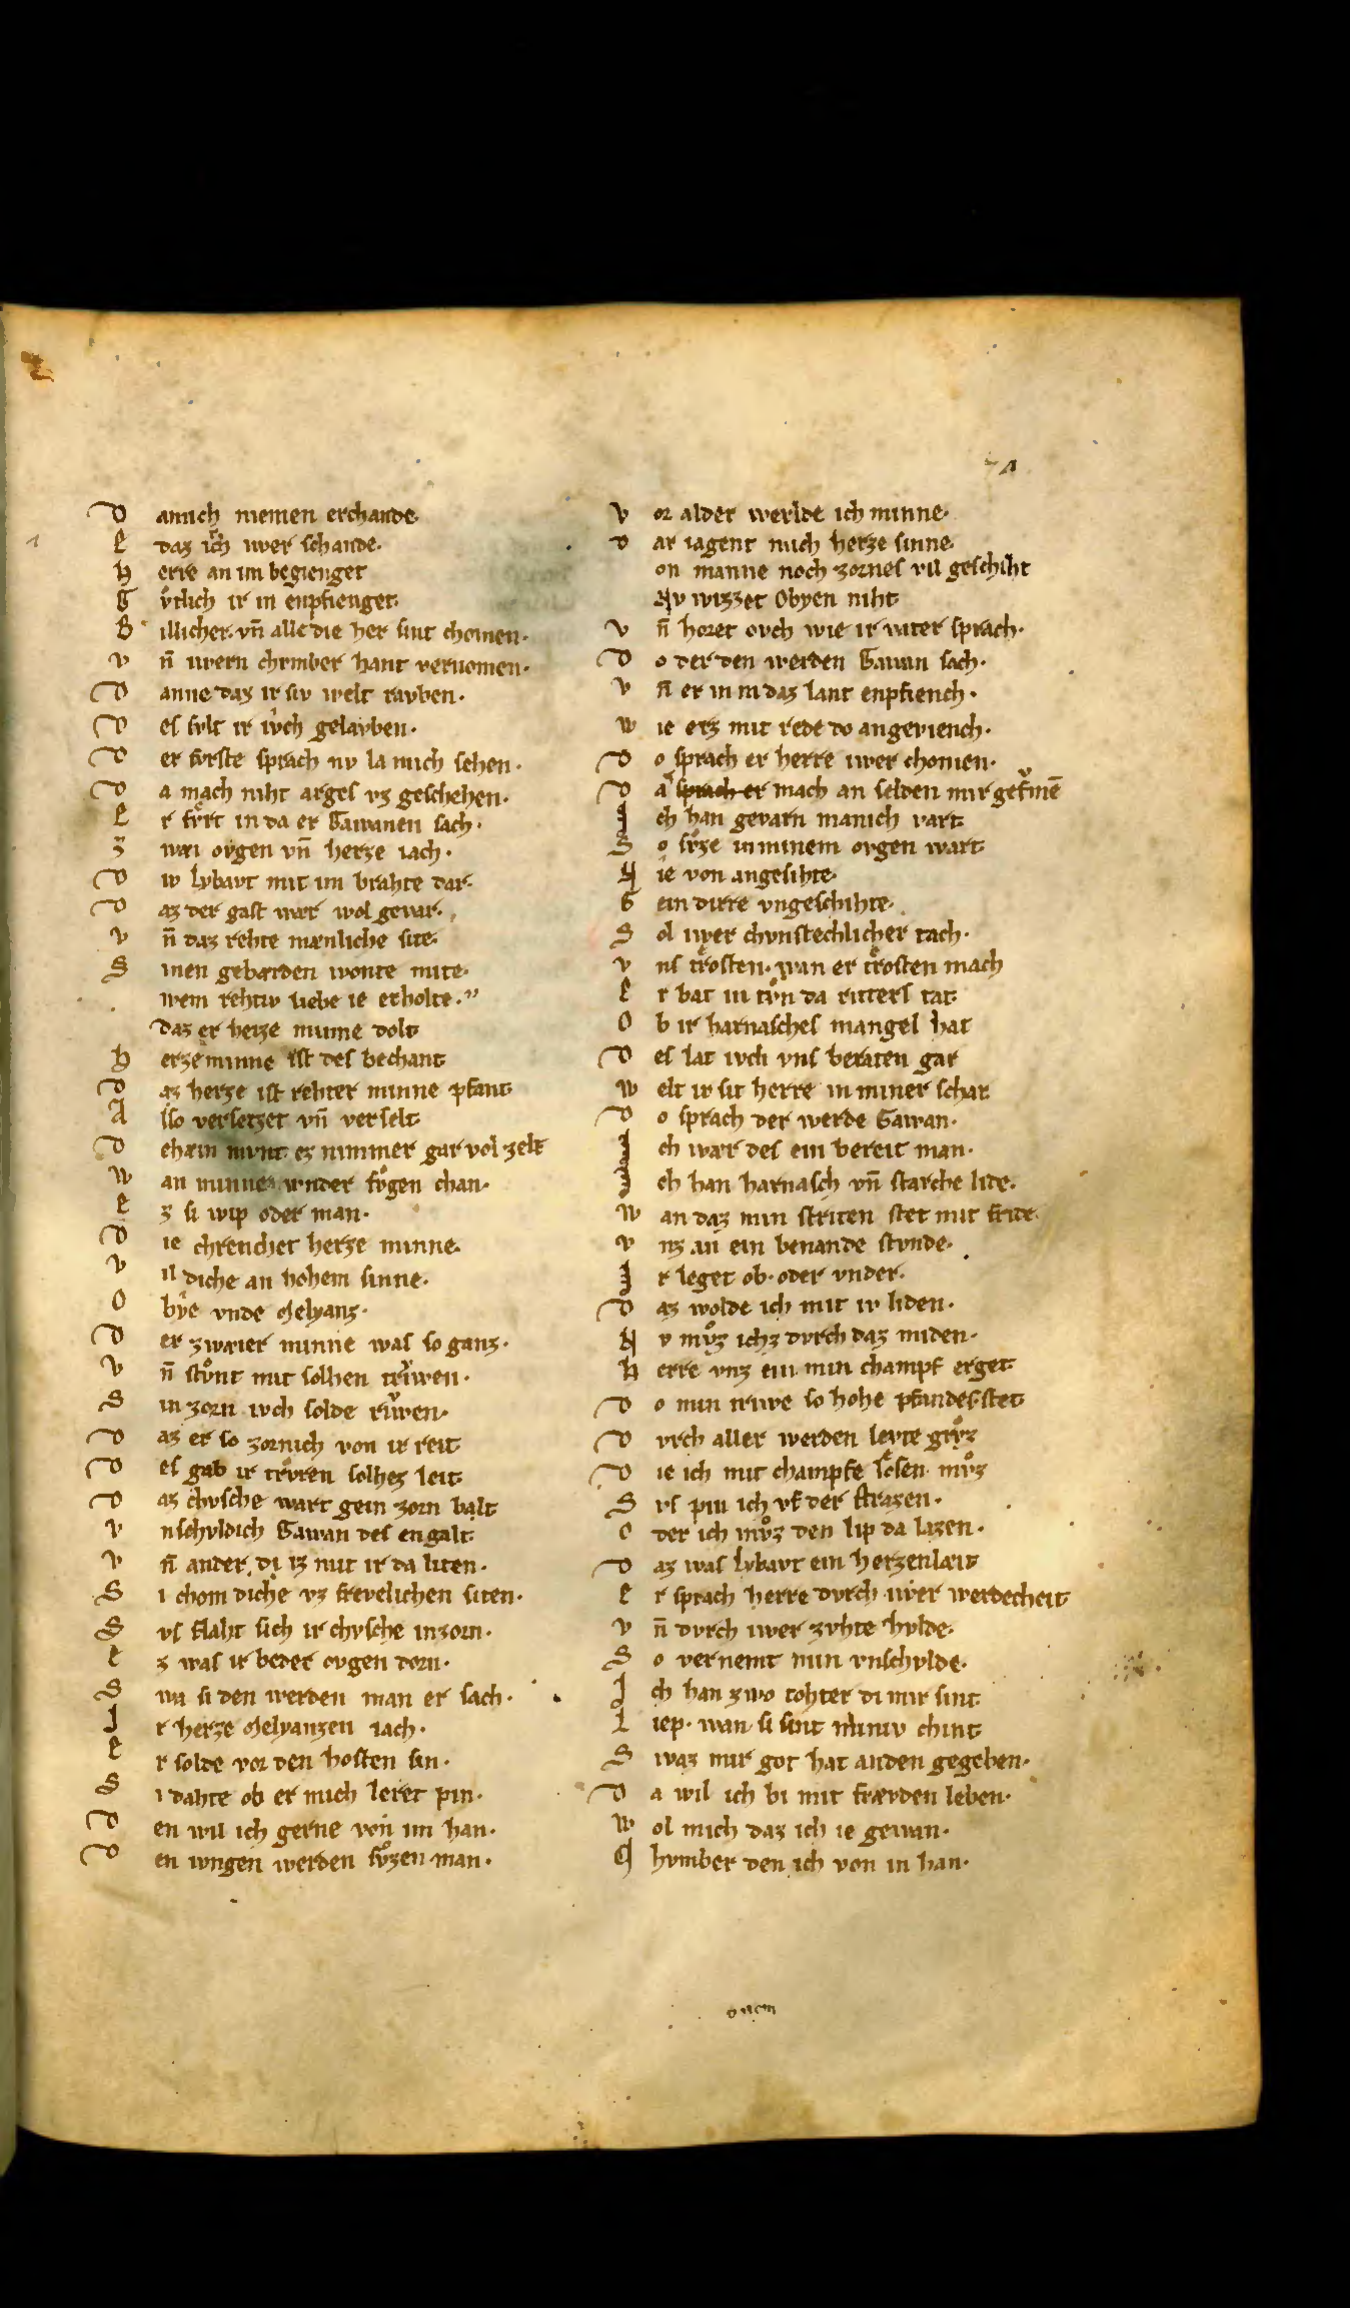 D annich niemen erchande·
E daz ich iwer schande·
H erre an im begienget
G vͦtlich ir in enpfienget·
B illicher· vn̄ alle die her sint chomen·
V n̄ iwern chvmber hant vernomen·
D anne daz ir siv welt ravben·
D es svlt ir ivch gelavben·
D er fvrste sprach nv la mich sehen·
D a mach niht arges vz geschehen·
E r fvͦrt in da er Gawanen sach·
Z wæi ovgen vn̄ herze iach·
D iv lybavt mit im brahte dar·
D az der gast wær wol gevar·
V n̄ daz rehte mænliche site·
S inen gebærden wonte mite·
wem rehtiv liebe ie erholte·
Daz er herze minne dolt
H erze minne ist des bechant
D az herze ist rehter minne pfant
A lso versetzet vn̄ verselt·
D ehæin mvnt ez nimmer gar vol zelt
W an minne wnder fvͦgen chan·
E z si wip oder man·
D ie chrenchet herze minne·
V il diche an hohem sinne·
O bye vnde Melyanz·
D er zwæier minne was so ganz·
V n̄ stvͦnt mit solhen triwen·
S in zorn ivch solde riwen·
D az er so zornich von ir reit
D es gab ir trvren solhez leit
D az chvsche wart gein zorn balt
V nschvldich Gawan des engalt
V n̄ ander di iz mit ir da liten·
S i chom diche vz frevelichen siten·
S vs flaht sich ir chvsche in zorn·
E z was ir beder ovgen dorn·
S wa si den werden man er sach·
I r herze Melyanzen iach·
E r solde vor den hosten sin·
S i dahte ob er mich leret pin·
D en wil ich gerne von im han·
D en ivngen werden svͦzen man·
V or alder werlde ich minne·
D ar iagent mich herze sinne·
on minne noch zornes vil geschiht
Nv wizzet Obyen niht
V n̄ horet ovch wie ir vater sprach·
D o der den werden Gawan sach·
V n̄ er in in daz lant enpfiench·
W ie erz mit rede do angeviench·
D o sprach er herre iwer chomen·
D a sprach er mach an selden mir gefrvmē
I ch han gevarn manich vart
S o svͦze in minem ovgen wart
N ie von angesihte·
G ein dirre vngeschihte·
S ol iwer chvnsteclicher tach·
V ns trosten· wan er trosten mach
E r bat in tvͦn da ritters tat
O b ir harnasches mangel hat
D es lat ivch vns beraten gar
W elt ir sit herre in miner schar
D o sprach der werde Gawan·
I ch wær des ein bereit man·
I ch han harnasch vn̄ starche lide·
W an daz min striten stet mit fride·
V nz an ein benande stvnde·
I r leget ob· oder vnder·
D az wolde ich mit iv liden·
N v mvͦz ichz dvrch daz miden·
H erre vnz ein min champf erget
D o min triwe so hohe pfandes stet
D vrch aller werden levte grvͦz
D ie ich mit champfe losen mvͦz
S vs pin ich vf der strazen·
O der ich mvͦz den lip da lazen·
D az was lybavt ein herzenlæit
E r sprach herre dvrch iwer werdecheit
V n̄ dvrch iwer zvhte hvlde·
S o vernemt min vnschvlde·
I ch han zwo tohter di mir sint
L iep· wan si sint miniv chint
S waz mir got hat an den gegeben·
D a wil ich bi mit frævden leben·
W ol mich daz ich ie gewan·
C hvmber den ich von in han·